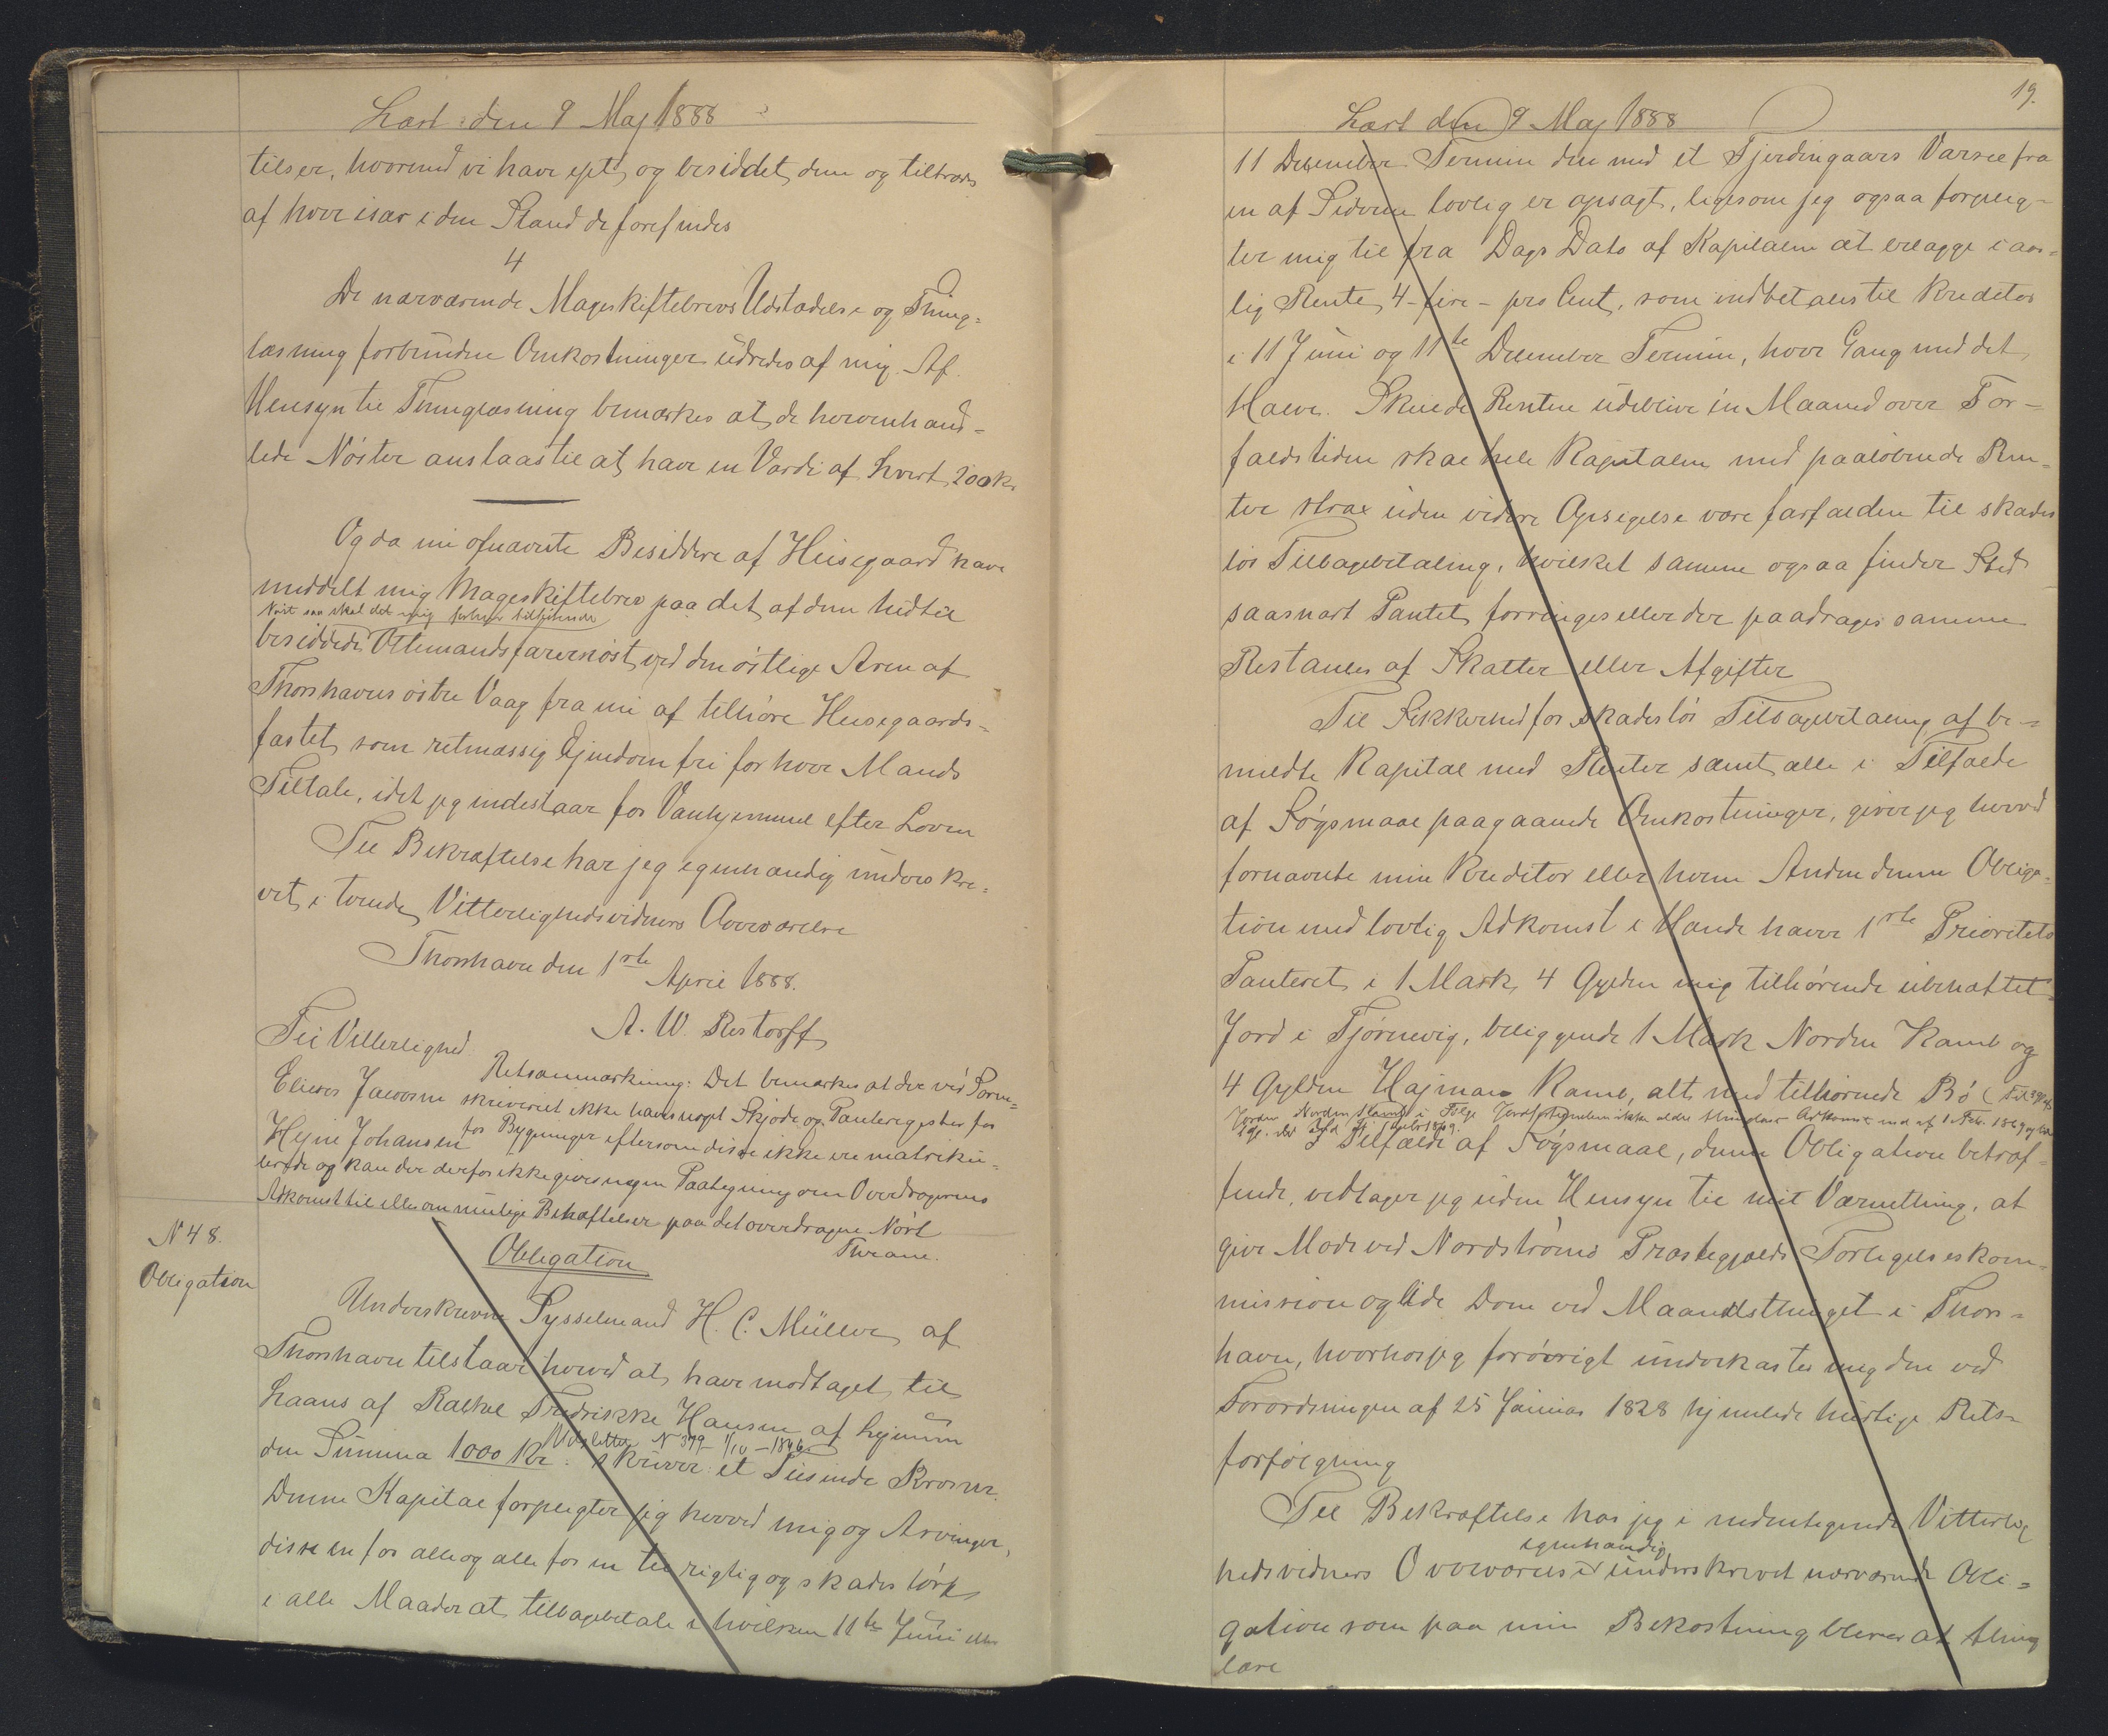 Læst den 9 Maj 1888
tilser, hvormed vi have ejet og besiddet dem og tiltrædes
af hver især i den Stand de forefindes
4
De nærværende Mageskiftebrevs Udstædelse og Thing-
læsning forbundne Omkostninger udredes af mig. Af
Hensyn til Thinglæsning bemærkes at de herom hand-
lede Nöster anslaas til at have en Værdi af hvert 200 kr
Og da nu ofnævnte Besiddere af Husegaard have
meddelt mig Mageskiftebrev paa det af dem hidtil
Nöst saa skal det mig forhen tilhörende
besiddede Ottemandsfarernöst ved den östlige Arm af
Thorshavns östre Vaag fra nu af tilhöre Husegaards-
fæstet som retmæssig Ejendom fri for hver Mands
Tiltale, idet jeg indestaar for Vanhjemmel efter Loven
Til Bekræftelse har jeg egenhændig underskre-
vet i tvende Vitterlighedsvidners Overværelse
Thorshavn den 1ste April 1888.
A. W. Restorff
Til Vitterlighed
Elieser Jacobsen
Hejne Johansen
Retsanmærkning: Det bemærkes at der ved Soren-
skriveriet ikke haves noget Skjøde og Panteregister for
for Bygninger eftersom disse ikke ere matriku-
lerede og kan der derfor ikke gives nogen Paategning om Overdragerens
Adkomst til eller om mulige Behæftelser paa det overdragne Nöst
Thrane.
N 48.
Obligation
Obligation
Underskrevne Sysselmand H. C. Müller af
Thorshavn tilstaar herved at have modtaget til
Laans af Rakkel Fredrikke Hansen af
den Summa 1000 Kr. skriver: et Tusinde Kroner.
Udslettet N 379 1/10 – 1896
Denne Kapital forpligter jeg herved mig og Arvinger,
disse en for alle og alle for en til rigtig og skadeslös
i alle Maader at tilbagebetale i hvilken 11te Juni eller
19.
Læst den 9 Maj 1888
11 December Termin den med et Fjerdingaars Varsel fra
en af Siderne lovlig er opsagt, ligesom jeg ogsaa forplig-
ter mig til fra Dags Dato af Kapitalen at erlægge i aar-
lig Rente 4 – fire – pro Cent, som indbetales til Kreditor
i 11 Juni og 11te December Termin, hver Gang med det
Halve. Skulde Renten udeblive én Maaned over For-
faldstiden skal hele Kapitalen med paaløbende Ren-
ter strax uden videre Opsigelse være forfalden til skades
lös Tilbagebetaling, hvilket samme ogsaa finder Sted
saasnart Pantet forringes eller der paadrages samme
Restancer af Skatter eller Afgifter
Til Sikkerhed for skadeslös Tilbagebetaling af be-
meldte Kapital med Renter samt alle i Tilfælde
af Søgsmaal paagaaende Omkostninger, giver jeg herved
fornævnte min Kreditor eller hvem Anden denne Obliga-
tion med lovlig Adkomst i Hænde haver 1ste Prioritets
Panteret i 1 Mark 4 Gylden mig tilhørende ubehæftet
Jord i Tjørnevig, beliggende 1 Mark Norden Kamb og
4 Gylden Hajman Kamb, alt med tilhørende Bö
I Tilfælde af Søgsmaal, denne Obligation betræf-
fende, vedtager jeg uden Hensyn til mit Værnething, at
give Møde ved Nordstrømø Præstegjælds Forligelseskom-
mission og lide Dom ved Maanedsthinget i Thors-
havn, hvorhos jeg forövrigt underkaster mig den ved
Forordningen af 25 Januar 1828 hjemlede hurtige Rets-
forfölgning
Til Bekræftelse har jeg i nedentegnede Vitterlig
egenhændig
hedsvidners Overværelse underskrevet nærværende Obli-
gation som paa min Bekostning bliver at thing
læse